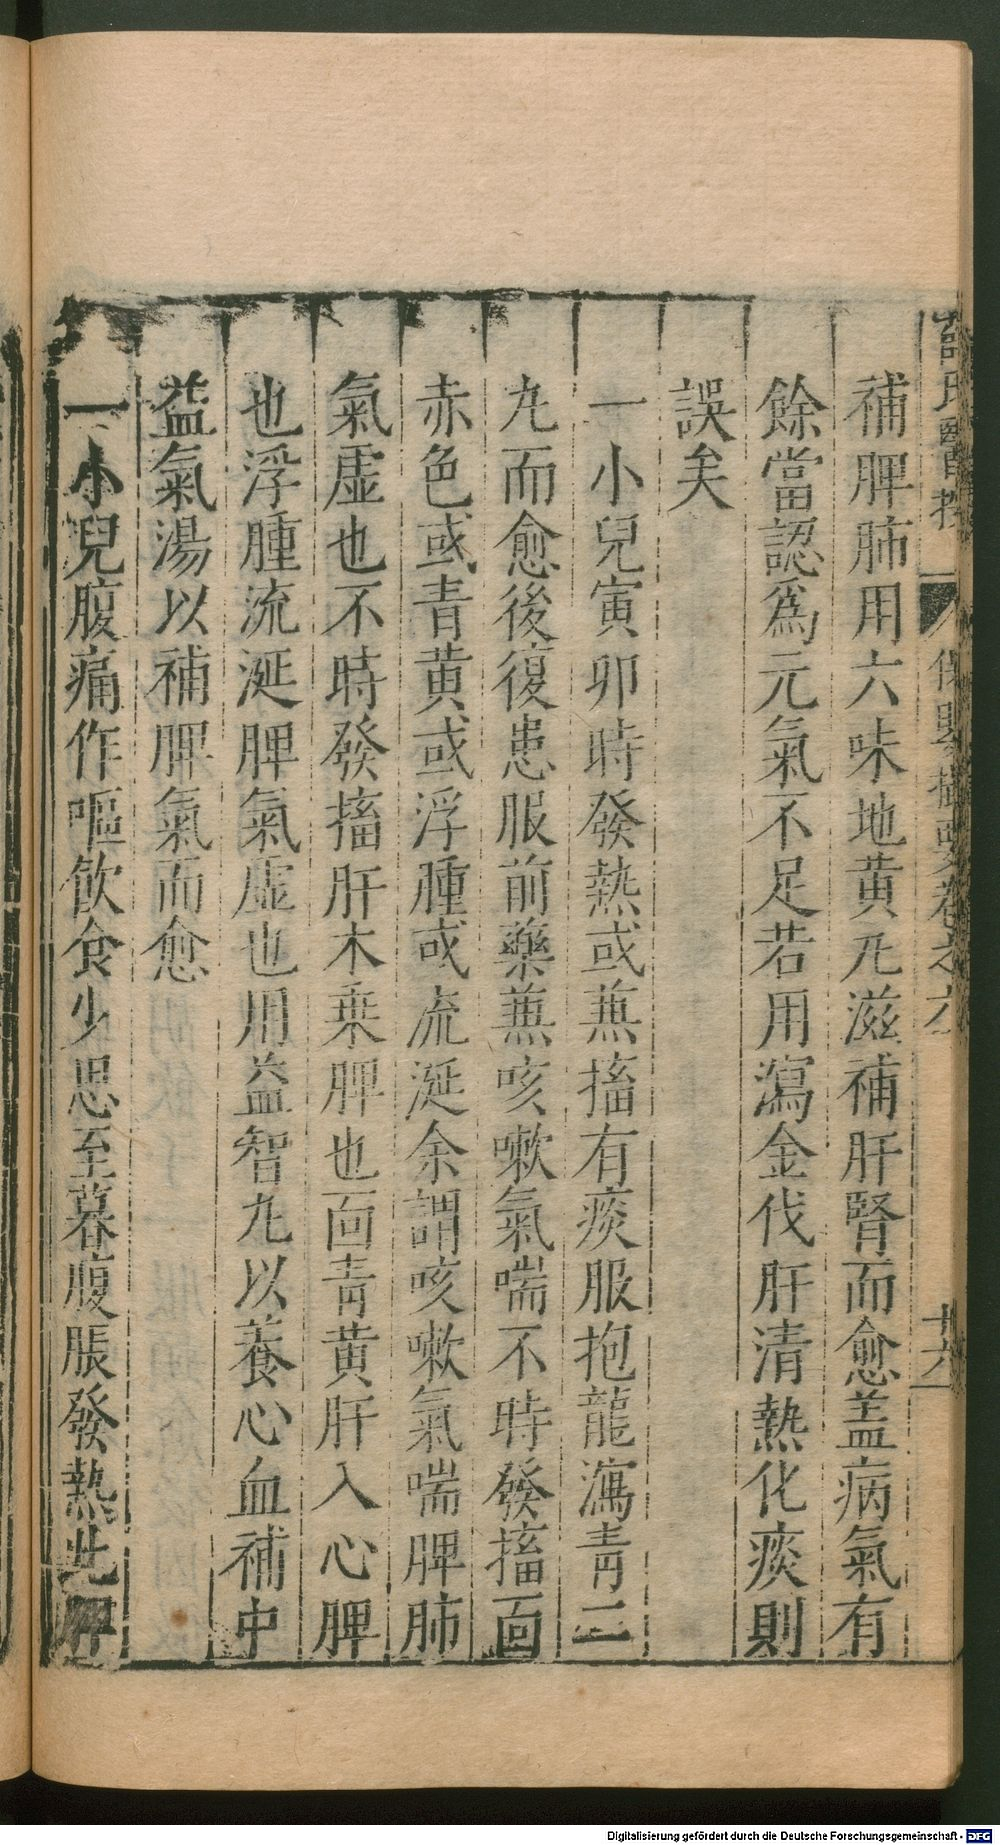 補脾肺用六味地黃九滋補肝腎而愈盖病氣有
餘當認爲元氣不足若用瀉金伐肝清熱化痰則
誤矣
一小兒寅卯時發熱或蕉搐有痰服抱龍瀉青二
九而愈後復患服前藥蕉咳嗽氣喘不時發搐面
赤色或青黃或浮腫或流涎余謂咳嗽氣喘脾肺
氣虛也不時發搐肝木乗脾也面青黃肝入心脾
也浮腫流涎脾氣虛也用益智九以養心血補中
益氣湯以補脾氣而愈
一小兒腹痛作嘔飲食少思至暮腹脹發熱此脾
氏醫按 保嬰撮要卷之六 十六
Digitalisierung gefördert durch die Deutsche Forschungsgemeinschaft - DFG